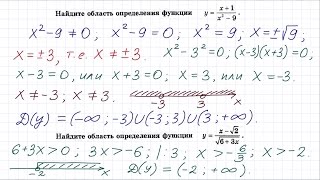 Найдите область определения функции y = (x+1)/(x²−9).
x²−9 ≠ 0, x²−9 = 0; x² = 9; x = ±√9;
x = ±3, т.е. x ≠ ±3. x²−3² = 0; (x−3)(x+3) = 0;
x−3 = 0, или x+3 = 0; x = 3, или x = −3.
x ≠ −3, x ≠ 3. −3 3 x
D(y) = (−∞; −3)∪(−3; 3)∪(3; +∞).
Найдите область определения функции y = (x−√2)/√(6+3x).
6+3x > 0; 3x > −6; |:3; x > −6/3; x > −2.
−2 x D(y) = (−2; +∞).